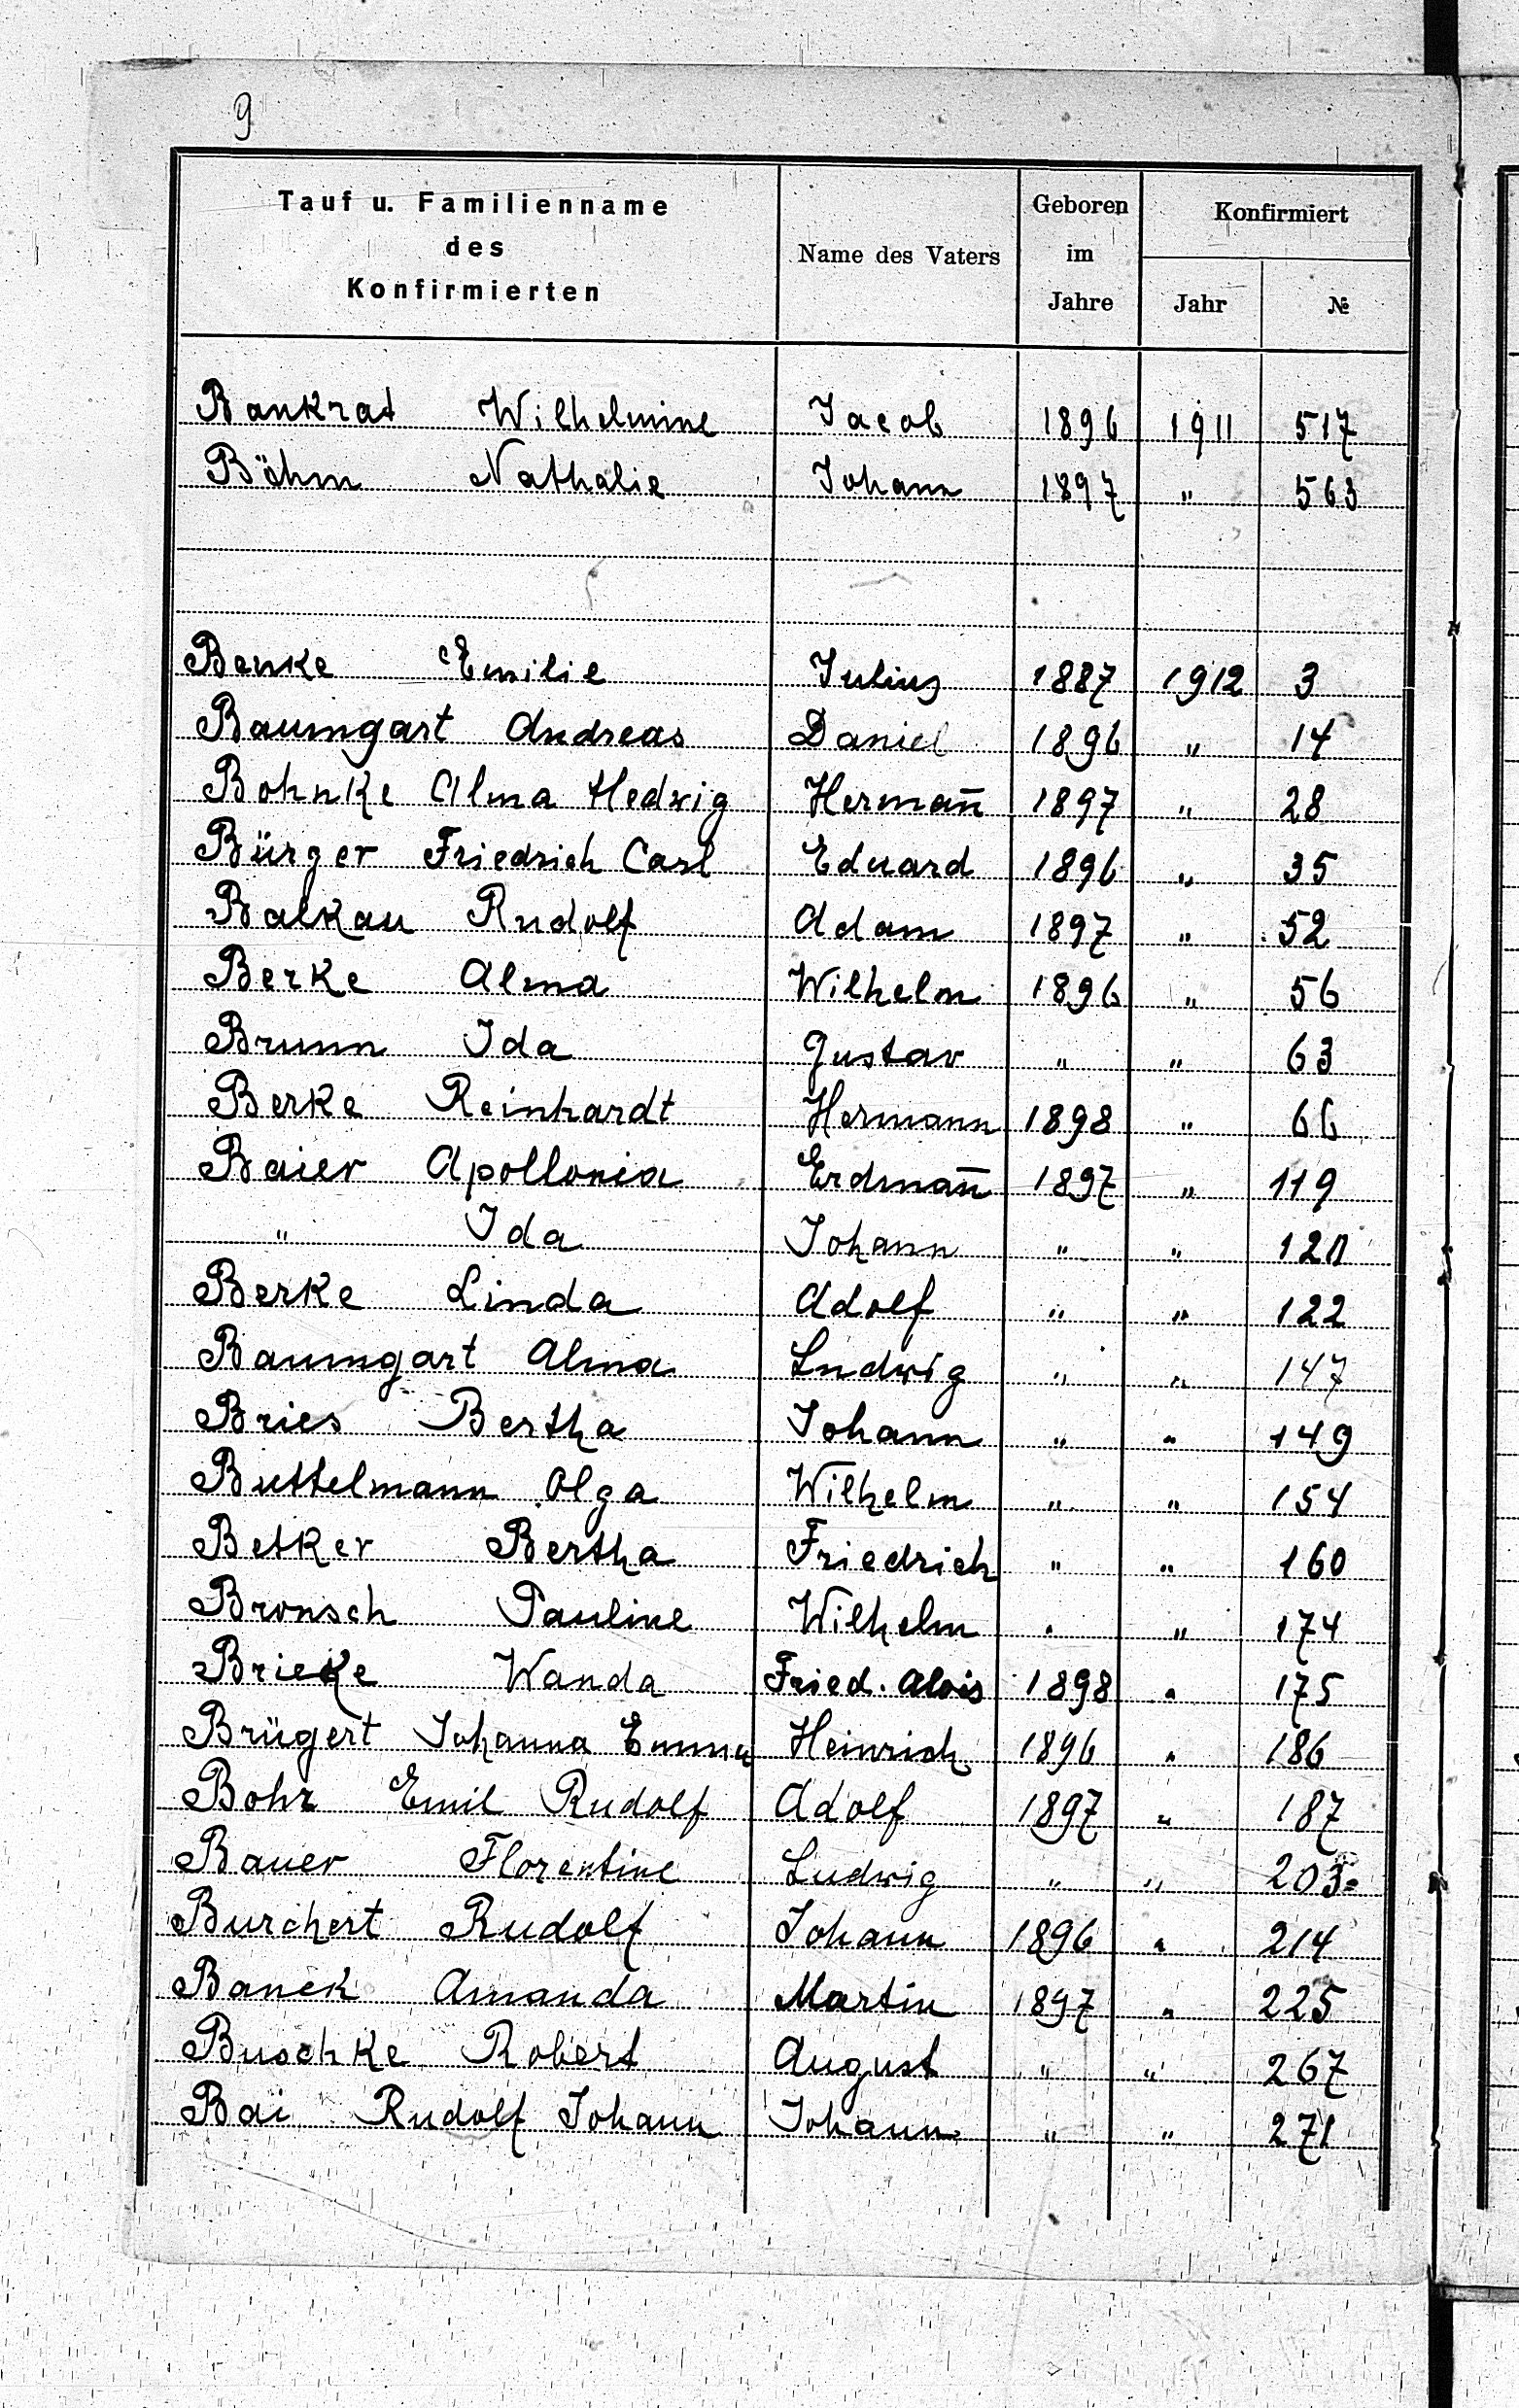 9
Tauf u. Familienname des Konfirmierten Name des Vaters Geboren im Jahre Konfirmiert Jahr №
Bankrat Wilhelmine Jacob 1896 1911 517
Böhm Nathalie Johann 1897 " 563
Benke Emilie Julius 1887 1912 3
Baumgart Andreas Daniel 1896 " 14
Bohnke Alma Hedwig Herman̅ 1897 " 28
Bürger Friedrich Carl Eduard 1896 " 35
Balkau Rudolf Adam 1897 " 52
Berke Alma Wilhelm 1896 " 56
Brunn Ida Gustav " " 63
Berke Reinhardt Hermann 1898 " 66
Baier Apollonia Erdman̅ 1897 " 119
" Ida Johann " "
Berke Linda Adolf " " 122
Baumgart Alma Ludwig " " 147
Bries Bertha Johann " " 149
Buttelmann Olga Wilhelm " " 154
Betker Bertha Friedrich " " 160
Bronsch Pauline Wilhelm " " 174
Brieke Wanda Fried. Alois 1898 " 175
Brügert Johanna Emma Heinrich 1896 " 186
Bohr Emil Rudolf Adolf 1897 " 187
Bauer Florentine Ludwig " " 203
Burchert Rudolf Johann 1896 " 214
Banek Amanda Martin 1897 " 225
Buschke Robert August " " 267
Bai Rudolf Johann Johann " " 271